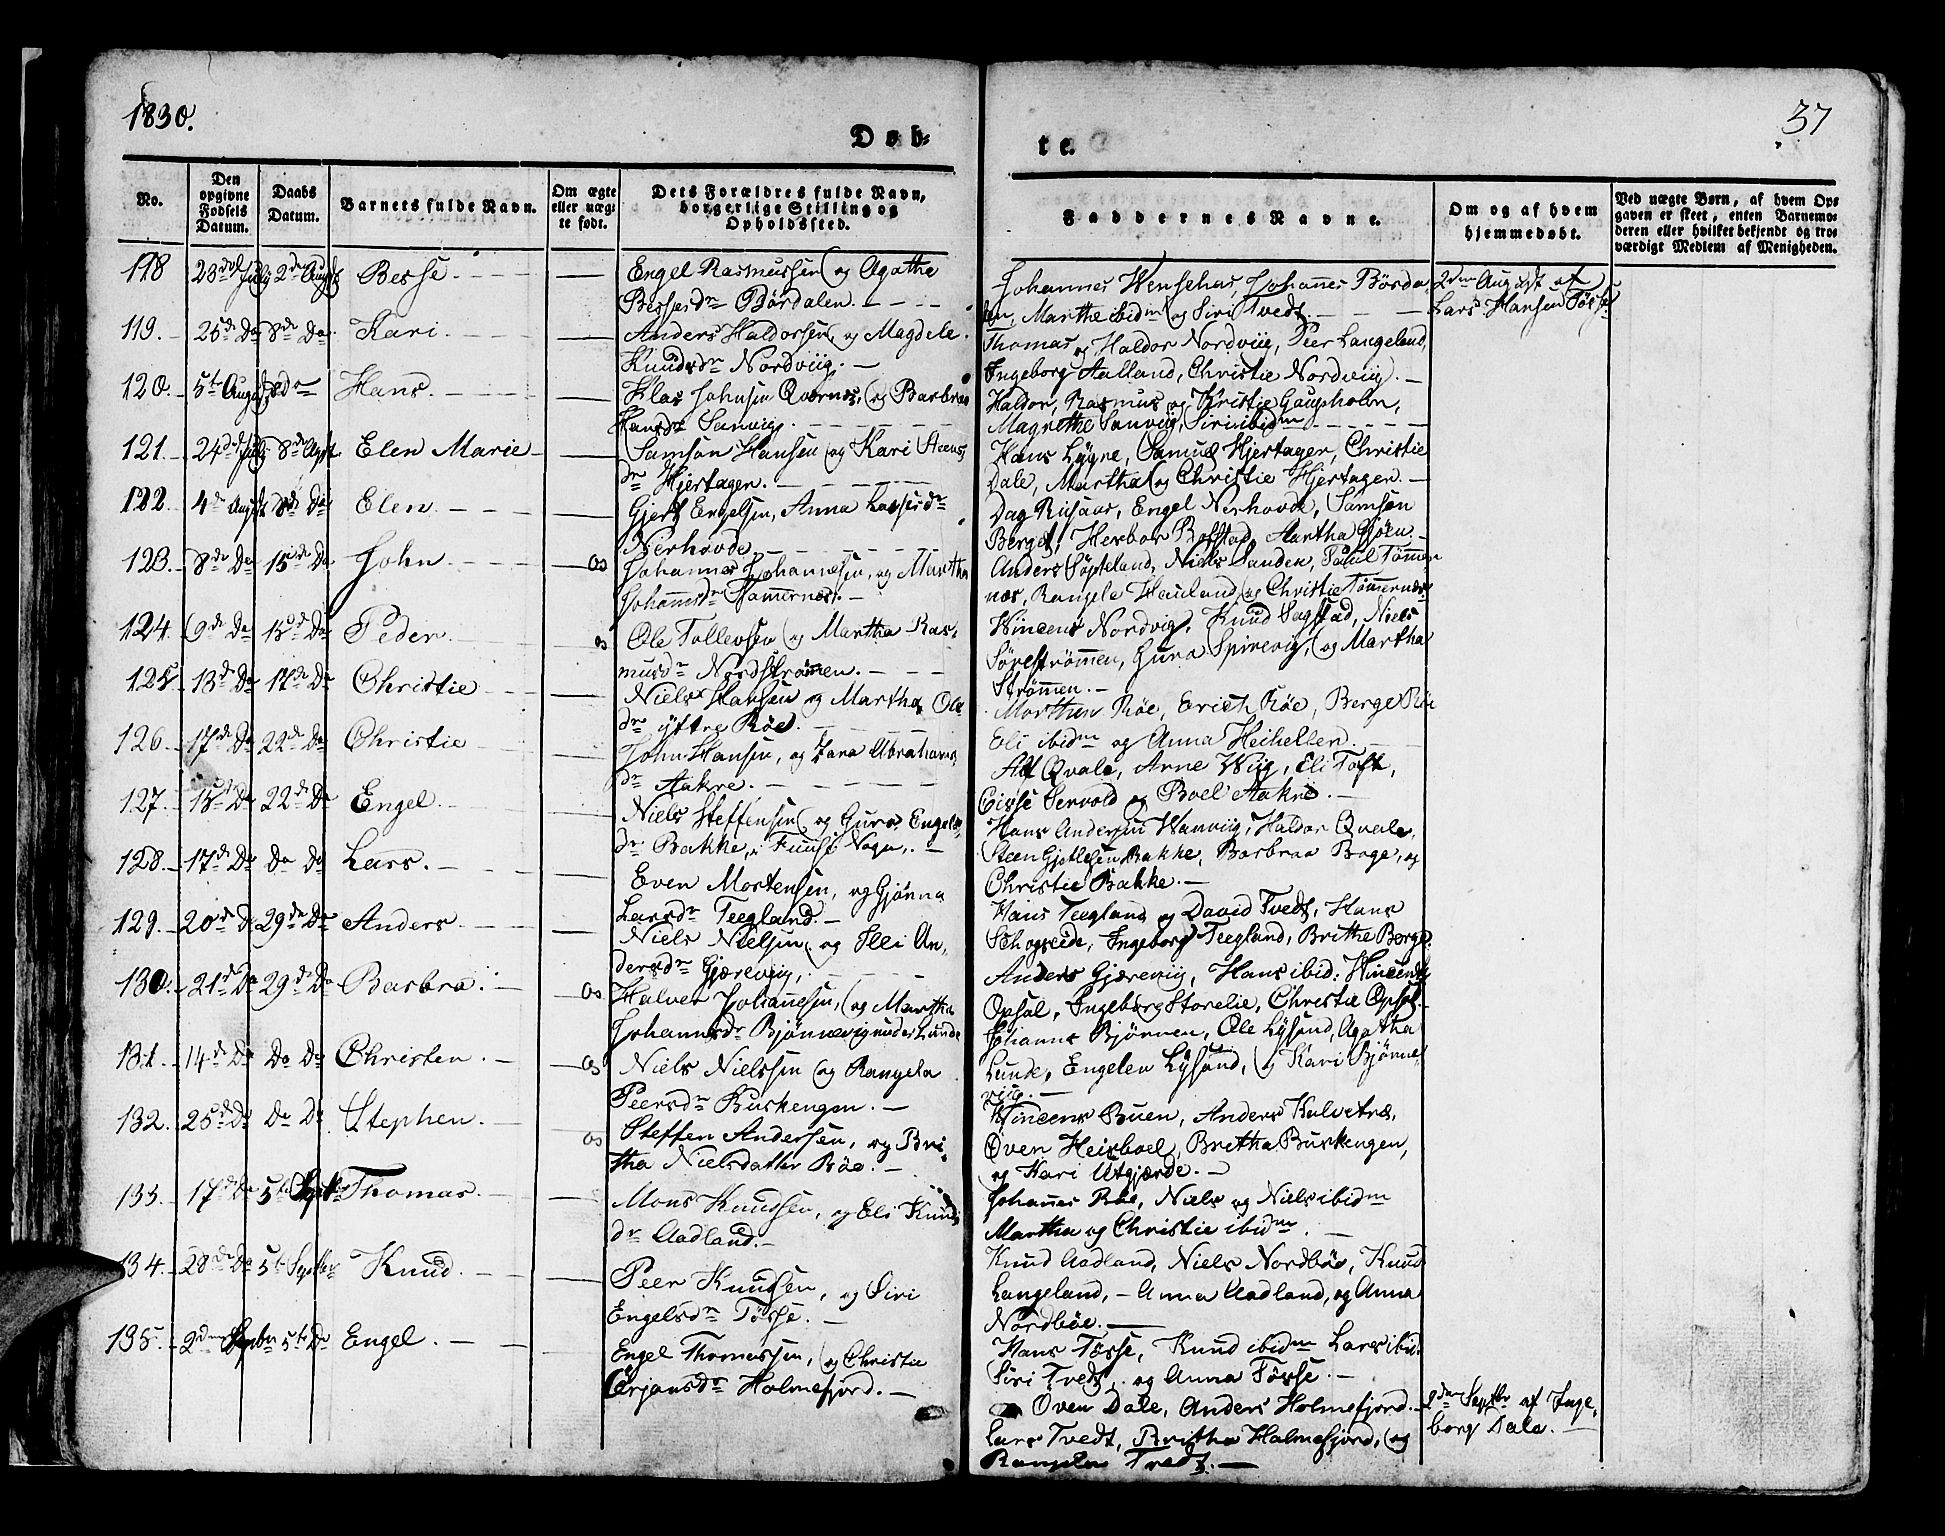 1830.
37
Døb-
te.
No.
Den opgivne Fødsels Datum.
Daabs Datum.
Barnets fulde Navn.
Om ægte eller uægte født.
Dets Forældres fulde Navn, borgerlige Stilling og Opholdssted.
Faddernes Navne.
Om og af hvem hjemmedøbt.
Ved uægte Børn, af hvem Opgaven er skeet, enten Barnemoderen eller hvilket bekjendt og troværdigt Medlem af Menigheden.
118 23de July 2de Augst Besse. — Engel Rasmussen og Agathe
Bessesdr Bördalen.
Johannes Wensehas, Johannes Börda
len, Marthe ibidm og Siri Tvedt.
2den August af
Lars Hansen Tösse
119. 25de Do 8de Do Kari. — Anders Haldorsen, og Magdele
Knudsdr Nordviig.
Thomas og Haldor Nordviig, Peer Langeland,
Ingeborg Aalland, Christie Nordviig.
120. 5te Augst Hans. — Klas Johnsen Qværnes, og Barbraa
Hansdr Samvig.
Haldor, Rasmus og Kristie Gaupholm,
Magrethe Sanviig, Siri ibidm
121. 24de July 8de Agst. Elen Marie — Samson Hansen og Kari Steens
dr Hjertager.
Hans Lygne, Samuel Hjertager, Christie
Dale, Martha og Christie Hjertager.
122. 4de Augst 8de Do Elen. — Gjert Engelsen, Anna Lassesdr
Nerhovde.
Dag Rusaas, Engel Nerhovde, Samson
Berget, Herbor Bolstad, Martha Gjöen.
123. 8de Do 15de Do John. — Os Johannes Johannesen, og Martha
Johannsdr Tömernes.
Anders Söfteland, Niels Sanden, Paul Tömmer
næs, Rangele Hauland, og Christie Tömmernæs
124. 9de Do 15de Do Peder. os Ole Tollevsen og Martha Ras-
musdr Nordströmen.
Wincens Nordvig, Knud Sagstad, Niels
Söreströmmen, Gura Spirevig, og Martha
Strömmen.
125. 13de Do 17de Do Christie — Niels Hansen og Martha Ole
dr yttre Röe.
Morthen Röe, Erich Röe, Berge Röe
Eli ibidm og Anna Heihellen.
126. 17de Do 22de Do Christie — John Hansen, og Jana Abrahams
dr Aakre.
Alf Qvale, Arne Wiig, Eli Toft,
Cisse Servold og Boel Aakre.
127. 18de Do 22de Do Engel. — Niels Steffensen og Guro Engels
dr Bakke, i Fuuse Sogn.
Hans Andersen Wanviig, Haldor Qvale,
Steen Gjetlesen Bakke, Barbraa Boge, og
Christie Bakke.
128. 17de Do Do Do Lars. — Even Mortensen, og Gjönna
Larsdr Teegland.
Hans Teegland og David Tvedt, Hans
Skogseide, Ingeborg Teegland, Brithe Berge.
129. 20de D 29de Do Anders. — Niels Nielsen og Illi An-
dersdr Gjærevig,
Anders Gjærevig, Hans ibid: Wincents
Opsal, Ingeborg Storelie, Christie Opsal.
130. 21de Do 29de Do Barbra. — Os Halver Johannesen, og Martha
Johannsdr Björnevig under Lunde
Johanns Björnen, Ole Lysönd, Agatha
Lunde, Engelen Lysönd, og Kari Björne
vig.
131. 14de Do Do Do Christen. — Os Niels Nielssen og Rangela
Peersdr Buskengen.
Wincens Buen, Anders Kalvetræ,
Oven Heisboel, Britha Buskengen,
og Kari Utgjærde.
132. 25de Do Do Do Stephen. — Os Steffen Andersen, og Bri-
tha Nielsdatter Röe.
Johannes Röe, Niels og Niels ibidm
Martha og Christie ibidm.
133. 17de Do 5te Septbr Thomas. — Mons Knudsen, og Eli Knuds
dr Aadland.
Knud Aadland, Niels Nordböe, Knud
Langeland, — Anna Aadland, og Anna
Nordböe.
134. 28de Do 5te Septbr Knud. — Peer Knudsen, og Siri
Engelsdr Tösse.
Hans Tösse, Knud ibidm Lars ibid.
Siri Tvedt, og Anna Tösse.
135. 2den Septbr 5te Do Engel. — Engel Thomassen, og Christie
Örjansdr Holmefjord.
Oven Dale, Anders Holmefjord.
Lars Tvedt, Britha Holmefjord, og
Rangelen Tvedt.
2den Septbr af Inge-
borg Dale.